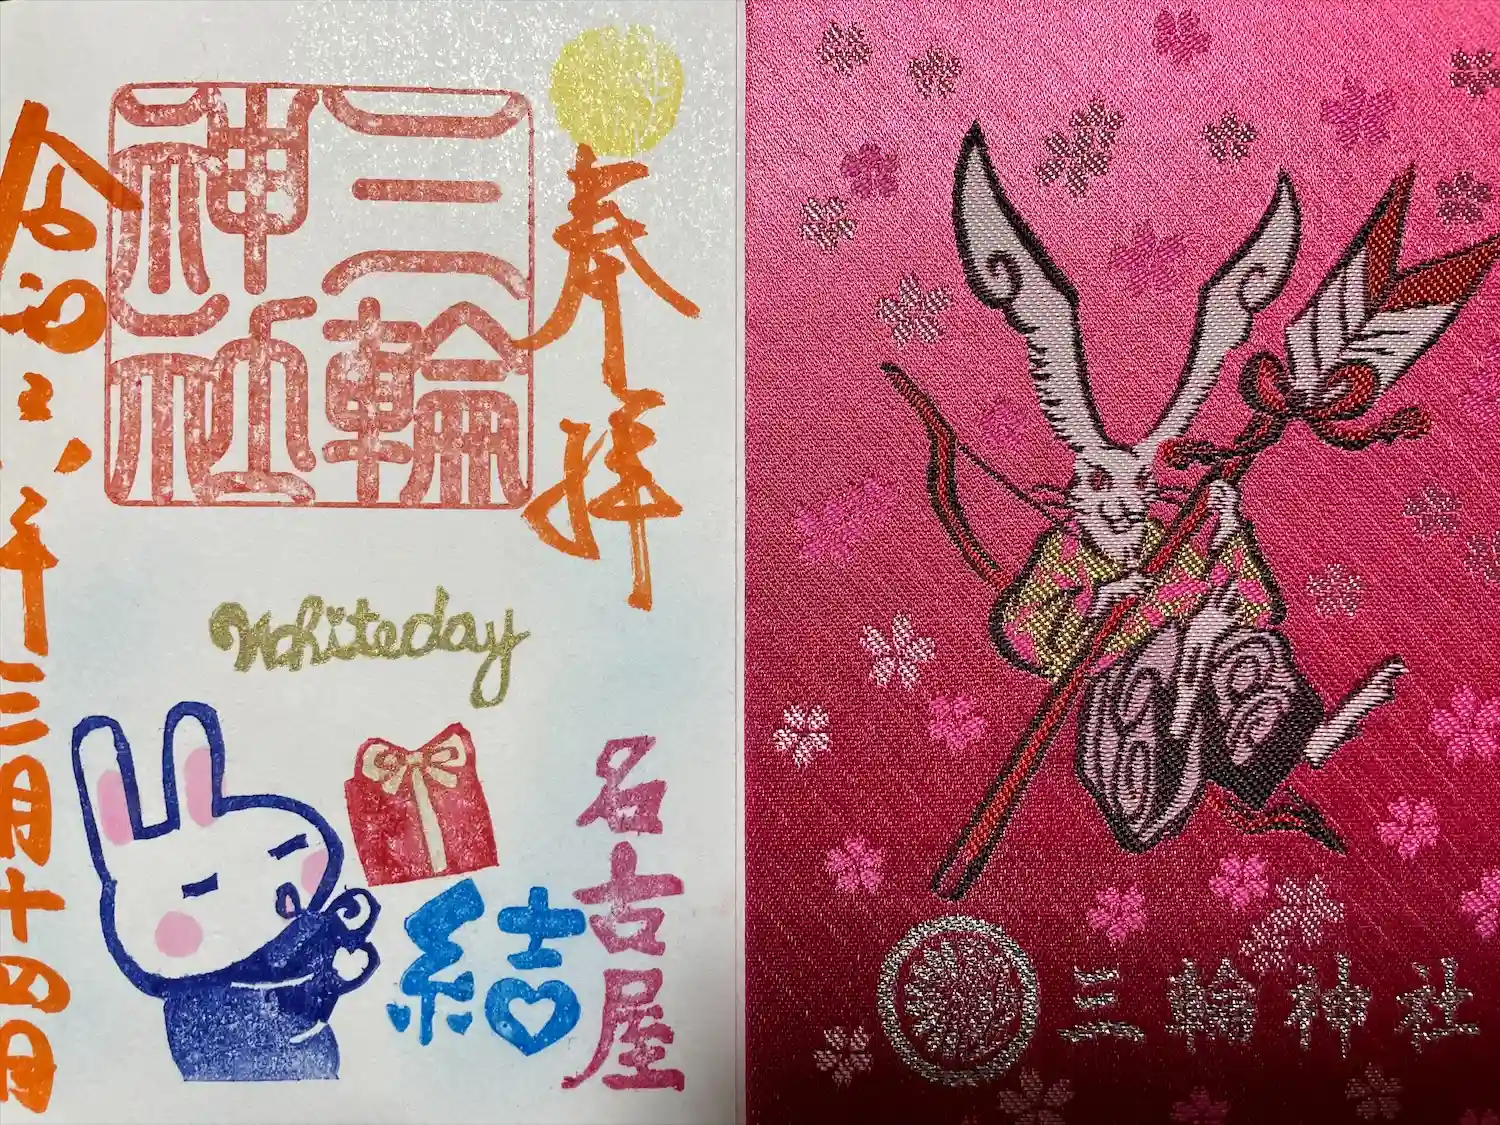 奉拝
三輪
神社
令和六年三月十四日
Whiteday
結
名古屋
三輪神社